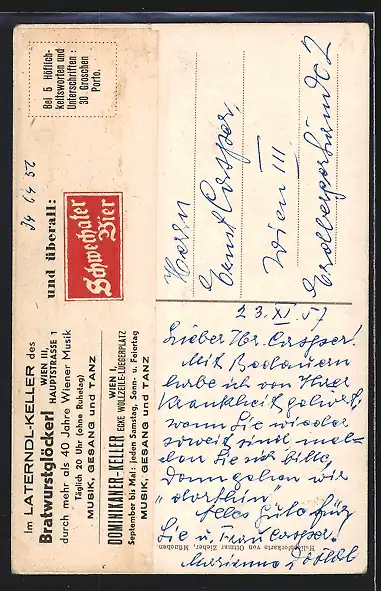 Bei 5 Höflich-
keitsworten und
Unterschriften:
30 Groschen
Porto.
und überall:
Schwechater
Bier
Im LATERNDL-KELLER des
Bratwurstglöckerl WIEN III,
HAUPTSTRASSE 1
durch mehr als 40 Jahre Wiener Musik
Täglich 20 Uhr (ohne Ruhetag)
MUSIK, GESANG und TANZ
DOMINIKANER-KELLER WIEN I,
ECKE WOLLZEILE-LUEGERPLATZ
September bis Mai: Jeden Samstag, Sonn- u. Feiertag
MUSIK, GESANG und TANZ
Herrn
Ernst Casper
Wien III
23. XI. 57
Lieber Hr. Casper!
Mit Bedauern
habe ich von Ihrer
Krankheit gehört,
wenn Sie wieder
soweit sind mel-
den Sie sich bitte,
Dann gehen wir
"dorthin"
Alles Gute für
Sie u. Frau Casper.
Marianne
Heliokarte von Ottmar Zieher, München